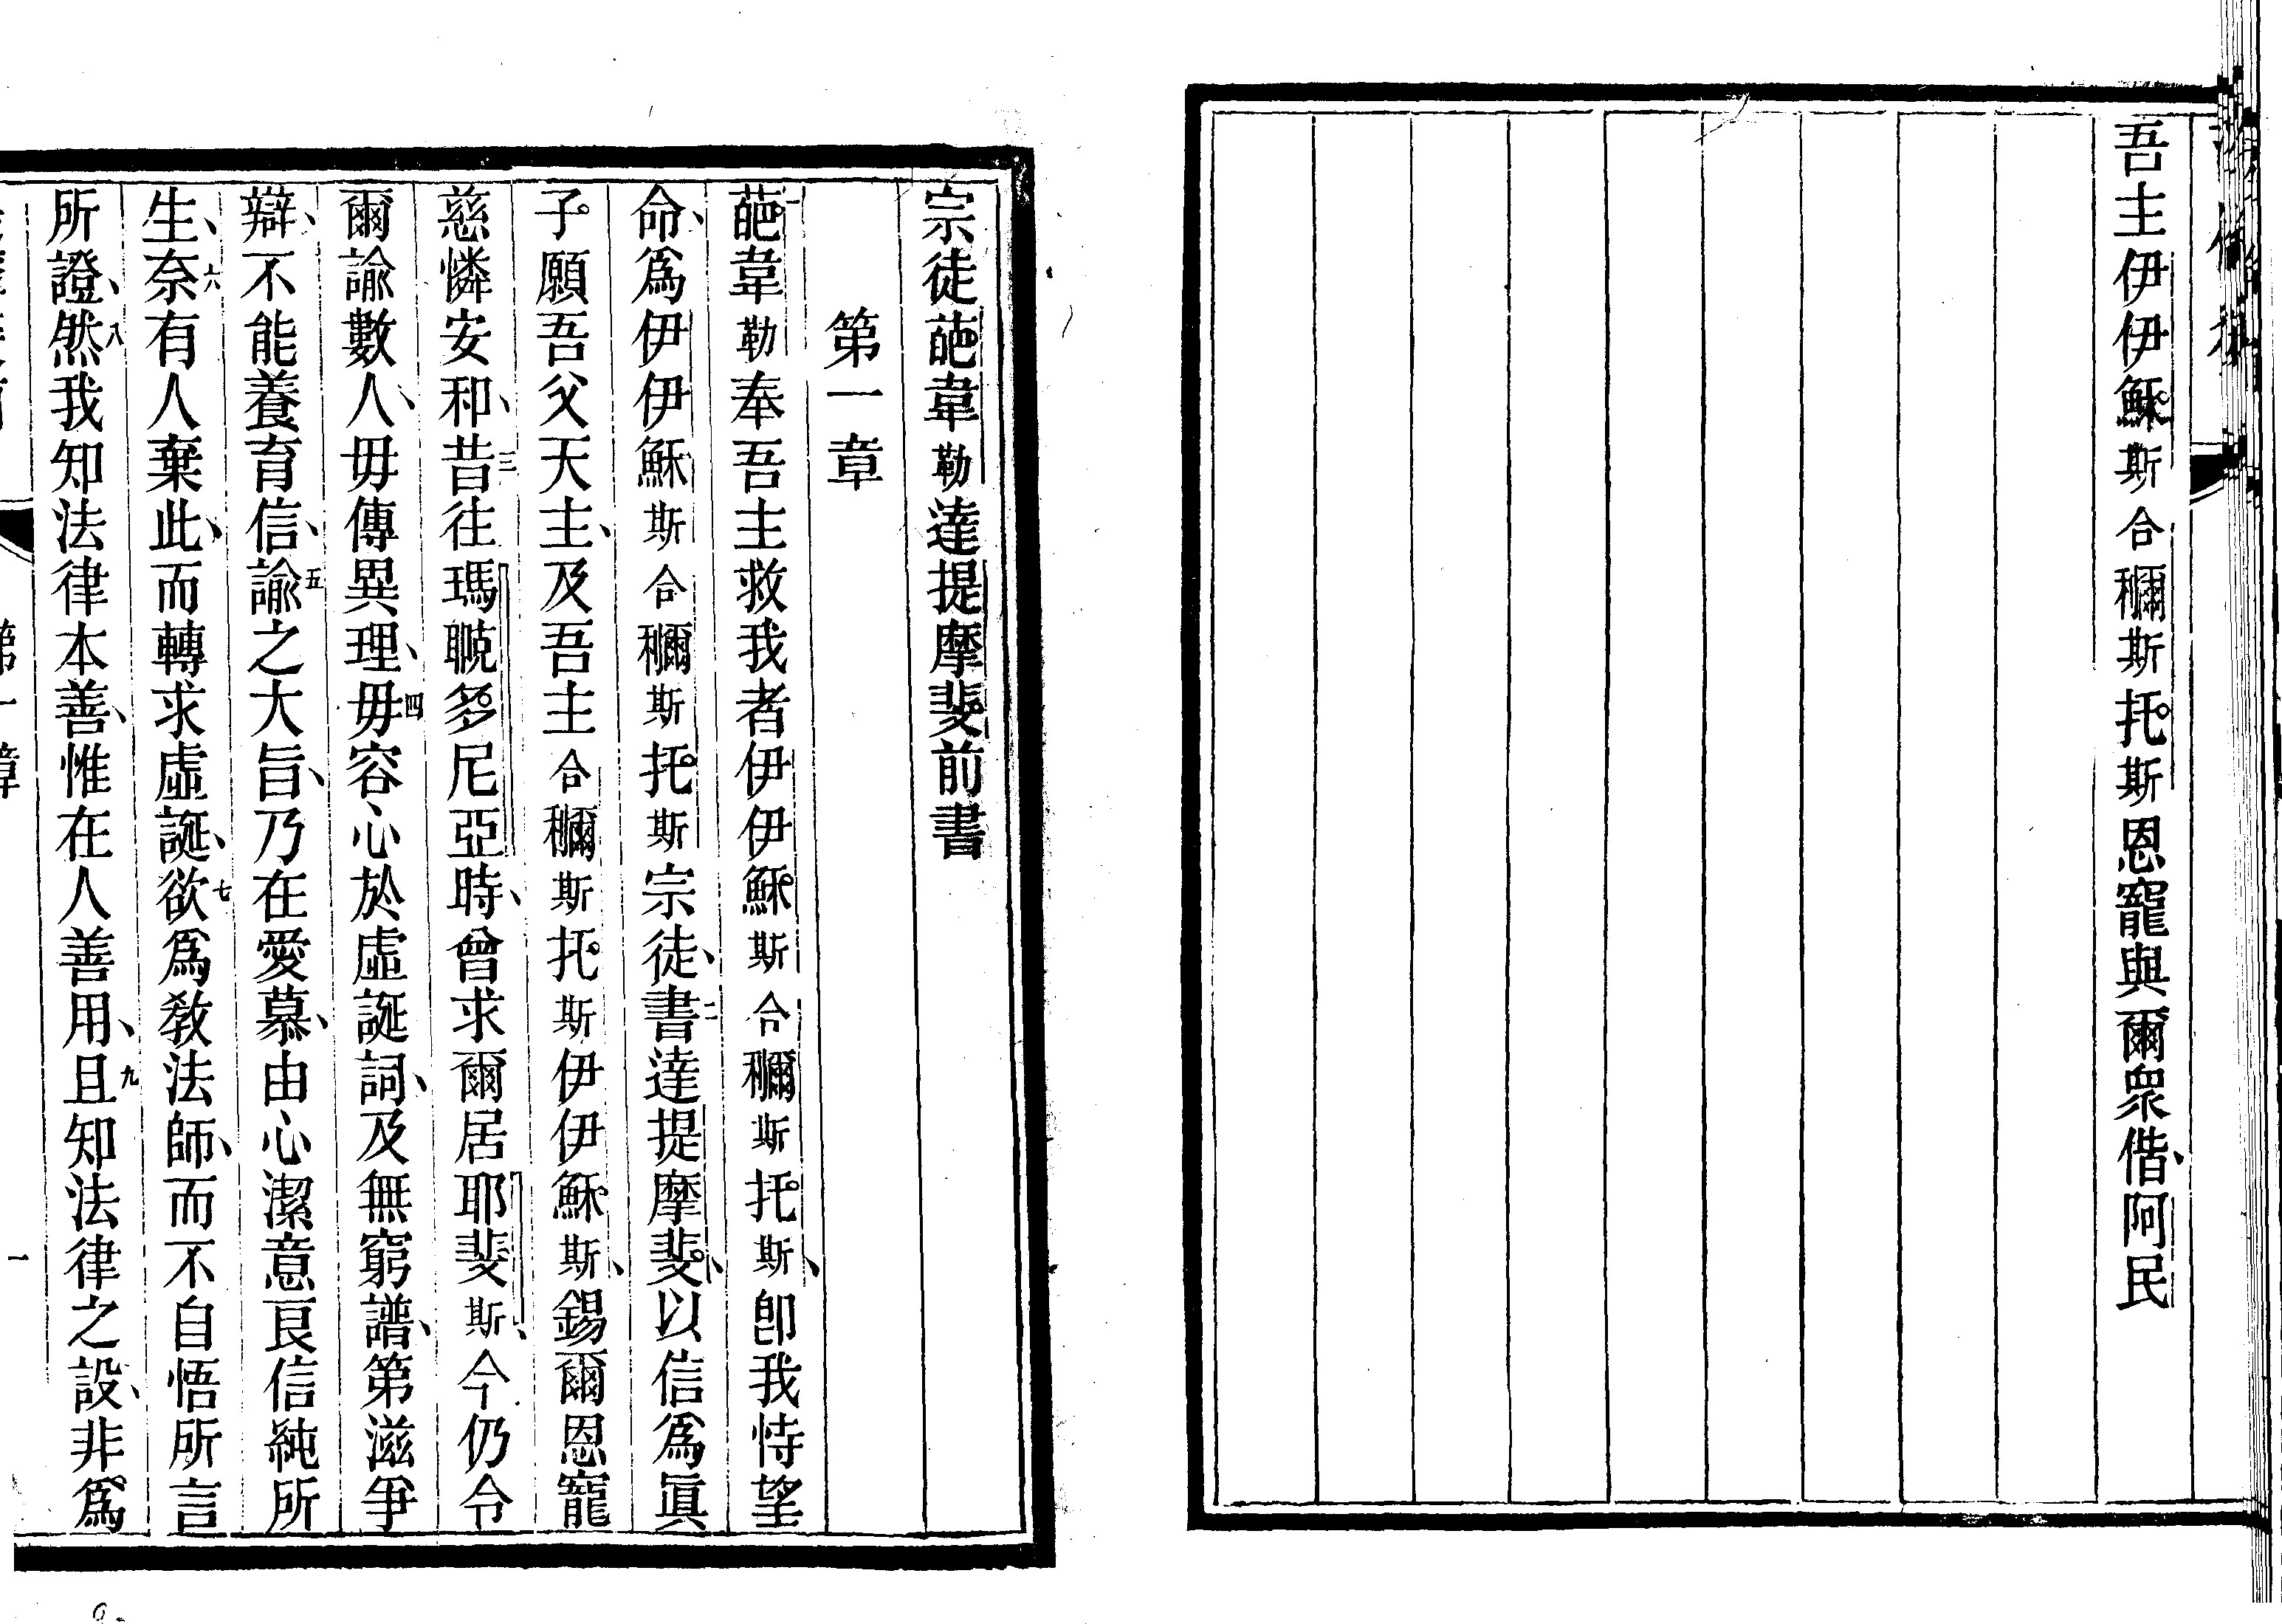 吾主伊伊穌斯合𥠖斯托斯恩寵與爾衆偕、阿民
宗徒葩韋勒達提摩斐前書
第一章
一葩韋勒奉吾主救我者伊伊穌斯合𥠖斯托斯、卽我恃望
命、爲伊伊穌斯合𥠖斯托斯宗徒、二書達提摩斐、以信爲眞
子、願吾父天主、及吾主合𥠖斯托斯伊伊穌斯、錫爾恩寵
慈憐安和、三昔往瑪聣多尼亞時、曾求爾居耶斐斯、今仍令
爾諭數人、毋傳異理、四毋容心於虛誕詞、及無窮譜、第滋爭
辯、不能養育信、五諭之大旨、乃在愛慕、由心潔意良信純所
生、六奈有人棄此、而轉求虛誕、七欲爲敎法師、而不自悟所言
所證、八然我知法律本善、惟在人善用、九且知法律之設、非爲
第一章
一